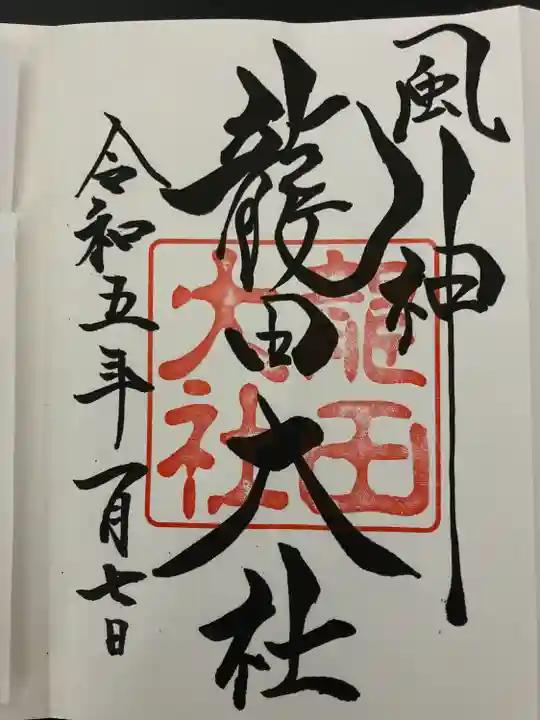 風神
龍田大社
龍田
大社
令和五年一月七日